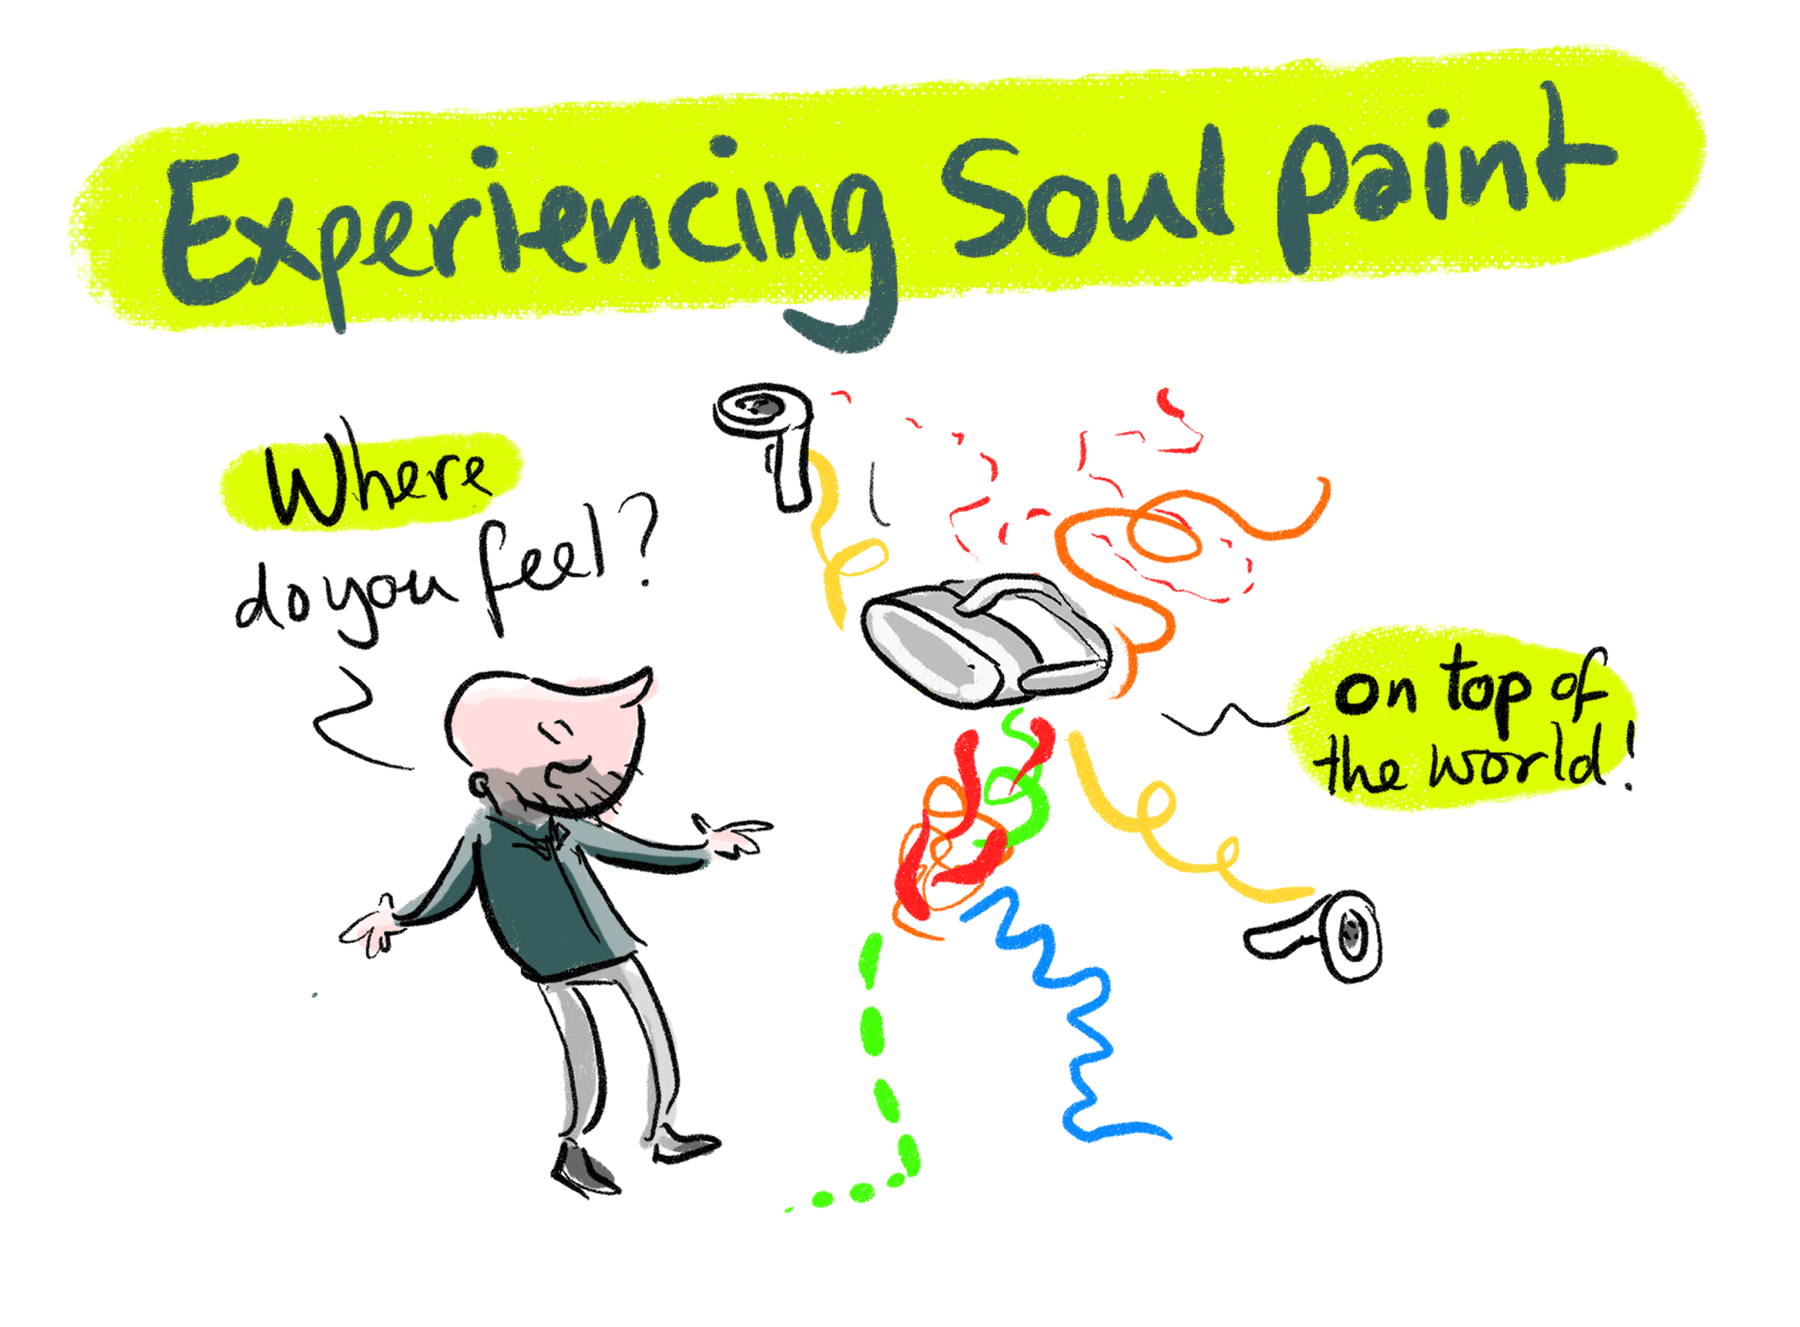 Experiencing Soul paint
Where
do you feel?
on top of
the world!